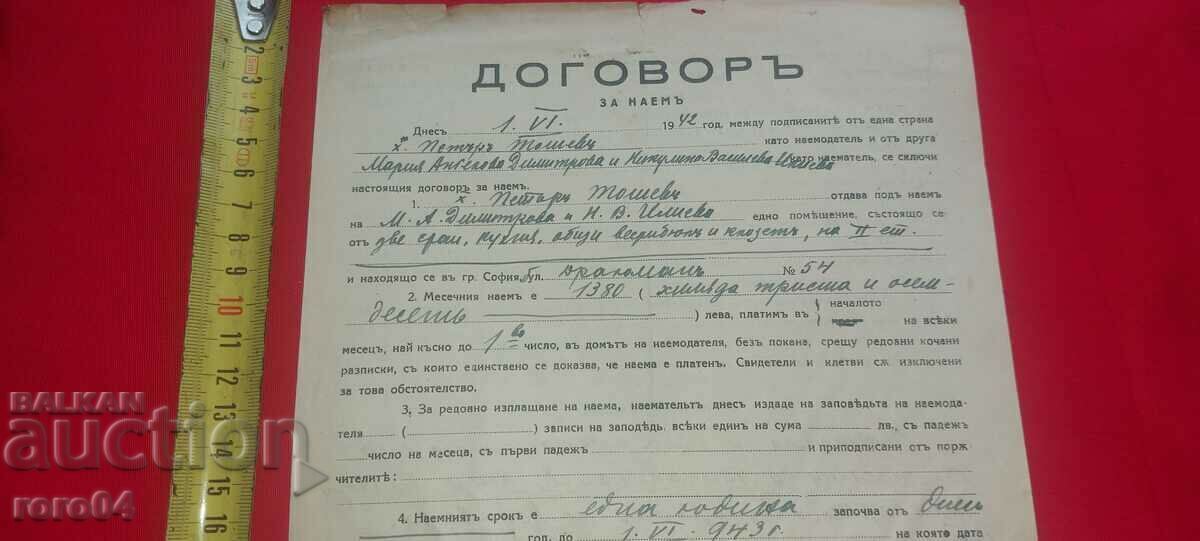 ДОГОВОРЪ
ЗА НАЕМЪ
Днесъ 1. VI. 1942 год. между подписаните отъ една страна
х. Петъръ Тошевъ като наемодател и отъ друга
Мария Ангелова Димитрова и Василева Илиева като наематель, се сключи
настоящия договоръ за наемъ.
1. х. Петъръ Тошевъ отдава подъ наемъ
на М. А. Димитрова и Н. В. Илиева едно помѣщение, състояще се
отъ две стаи, кухня, общи и клозетъ, на II ет.
и находящо се въ гр. София, ул. Драгоманъ № 54
2. Месечния наемъ е 1380 (хиляда триста и осем-
десетъ) лева, платимъ въ { началото на всѣки
месецъ, най късно до 1во число, въ домътъ на наемодателя, безъ покана, срещу редовни кочани
разписки, съ които единствено се доказва, че наема е платенъ. Свидетели и клетви сѫ изключени
за това обстоятелство.
3. За редовно изплащане на наема, наемательтъ днесъ издаде на заповѣдьта на наемода-
теля ( ) записи на заповѣдь, всѣки единъ на сума лв., съ падежъ
число на месеца, съ първи падежъ и приподписани отъ порж-
чителитѣ:
4. Наемниятъ срокъ е една година започва отъ днесъ
год. до 1. VI. 943 г. на която дата
BALKAN
auction
roro04
2 3 4 5 6 7 8 9 10 11 12 13 14 15 16